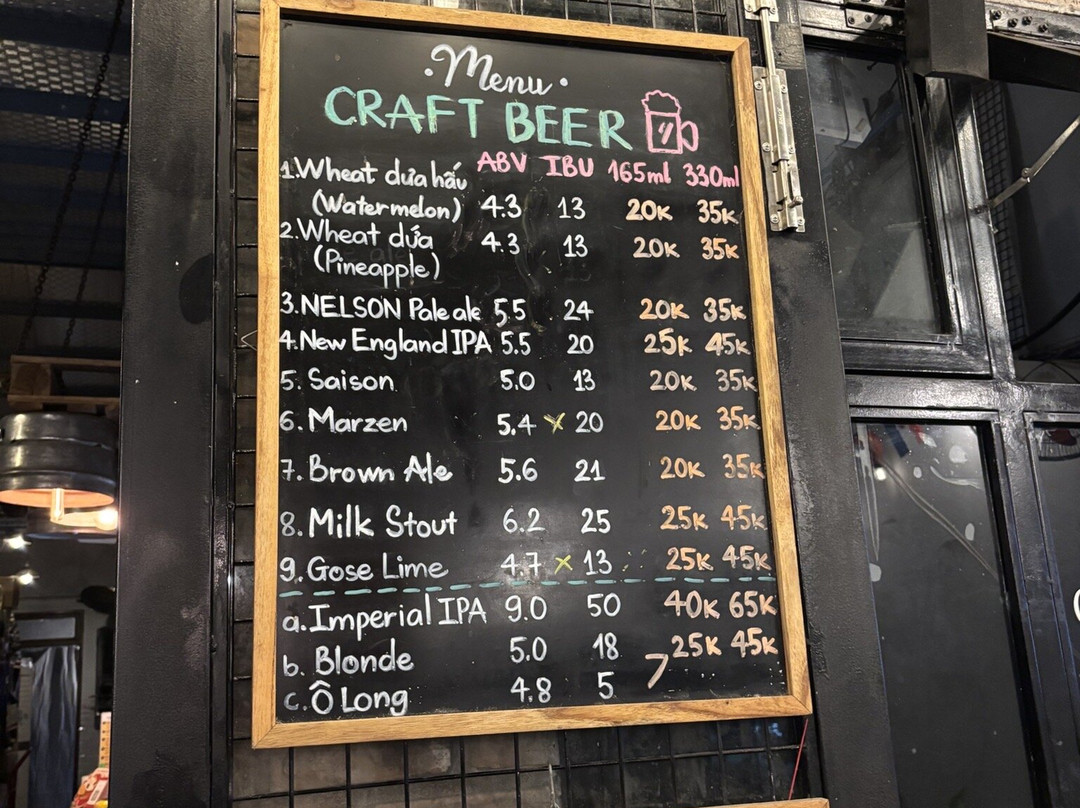 Menu
CRAFT BEER
ABV IBU 165ml 330ml
1.Wheat dưa hấu
(Watermelon) 4.3 13 20K 35K
2.Wheat dứa 4.3 13 20K 35K
(Pineapple)
3.NELSON Pale ale 5.5 24 20K 35K
4.New England IPA 5.5 20 25K 45K
5. Saison 5.0 13 20K 35K
6. Marzen 5.4 x 20 20K 35K
7. Brown Ale 5.6 21 20K 35K
8. Milk Stout 6.2 25 25K 45K
9. Gose Lime 4.7 x 13 25K 45K
a. Imperial IPA 9.0 50 40K 65K
b. Blonde 5.0 18 25K 45K
c. Ô Long 4.8 5